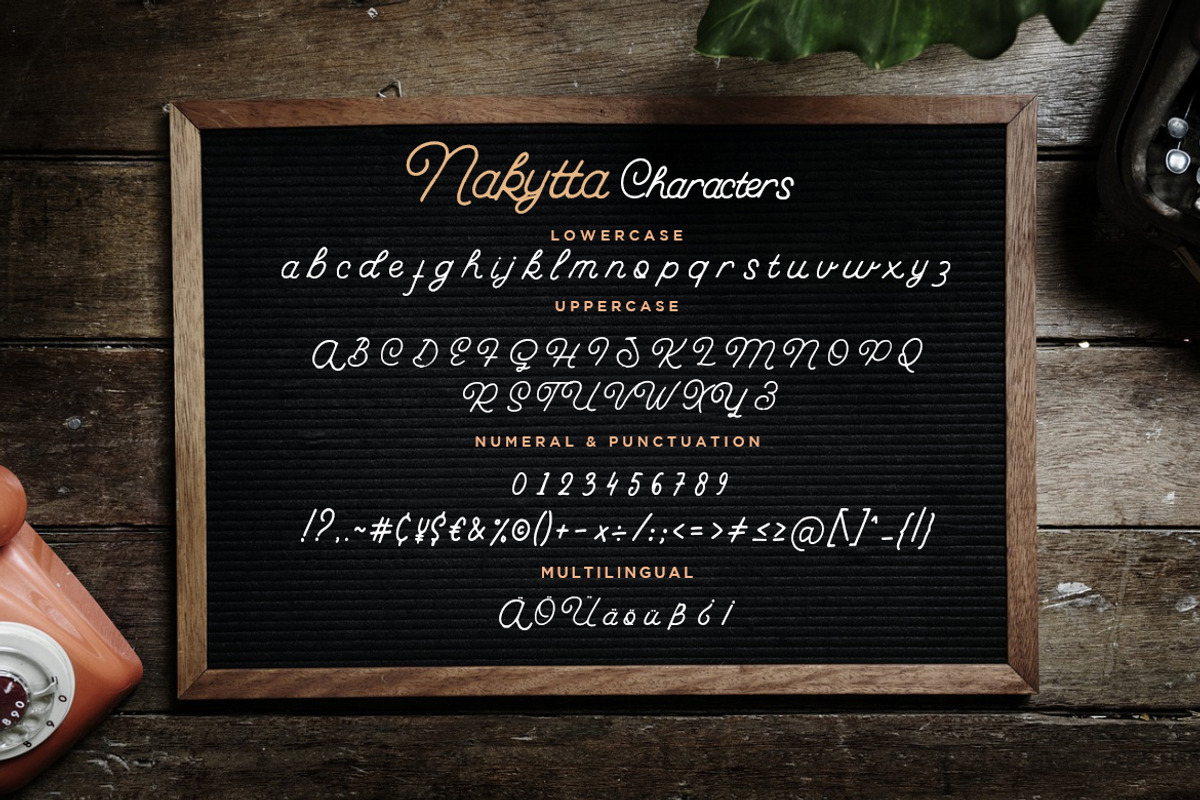 Nakytta Characters
LOWERCASE
a b c d e f g h i j k l m n o p q r s t u v w x y z
UPPERCASE
A B C D E F G H I J K L M N O P Q
R S T U V W X Y Z
NUMERAL & PUNCTUATION
0 1 2 3 4 5 6 7 8 9
!?,.~#₵¥$€&%©()+-×÷/:;<=>≠≤≥@[\]^_{|}
MULTILINGUAL
Ä Ö Ü ä ö ü ß ¿ ¡
8 9 0
8 9 0